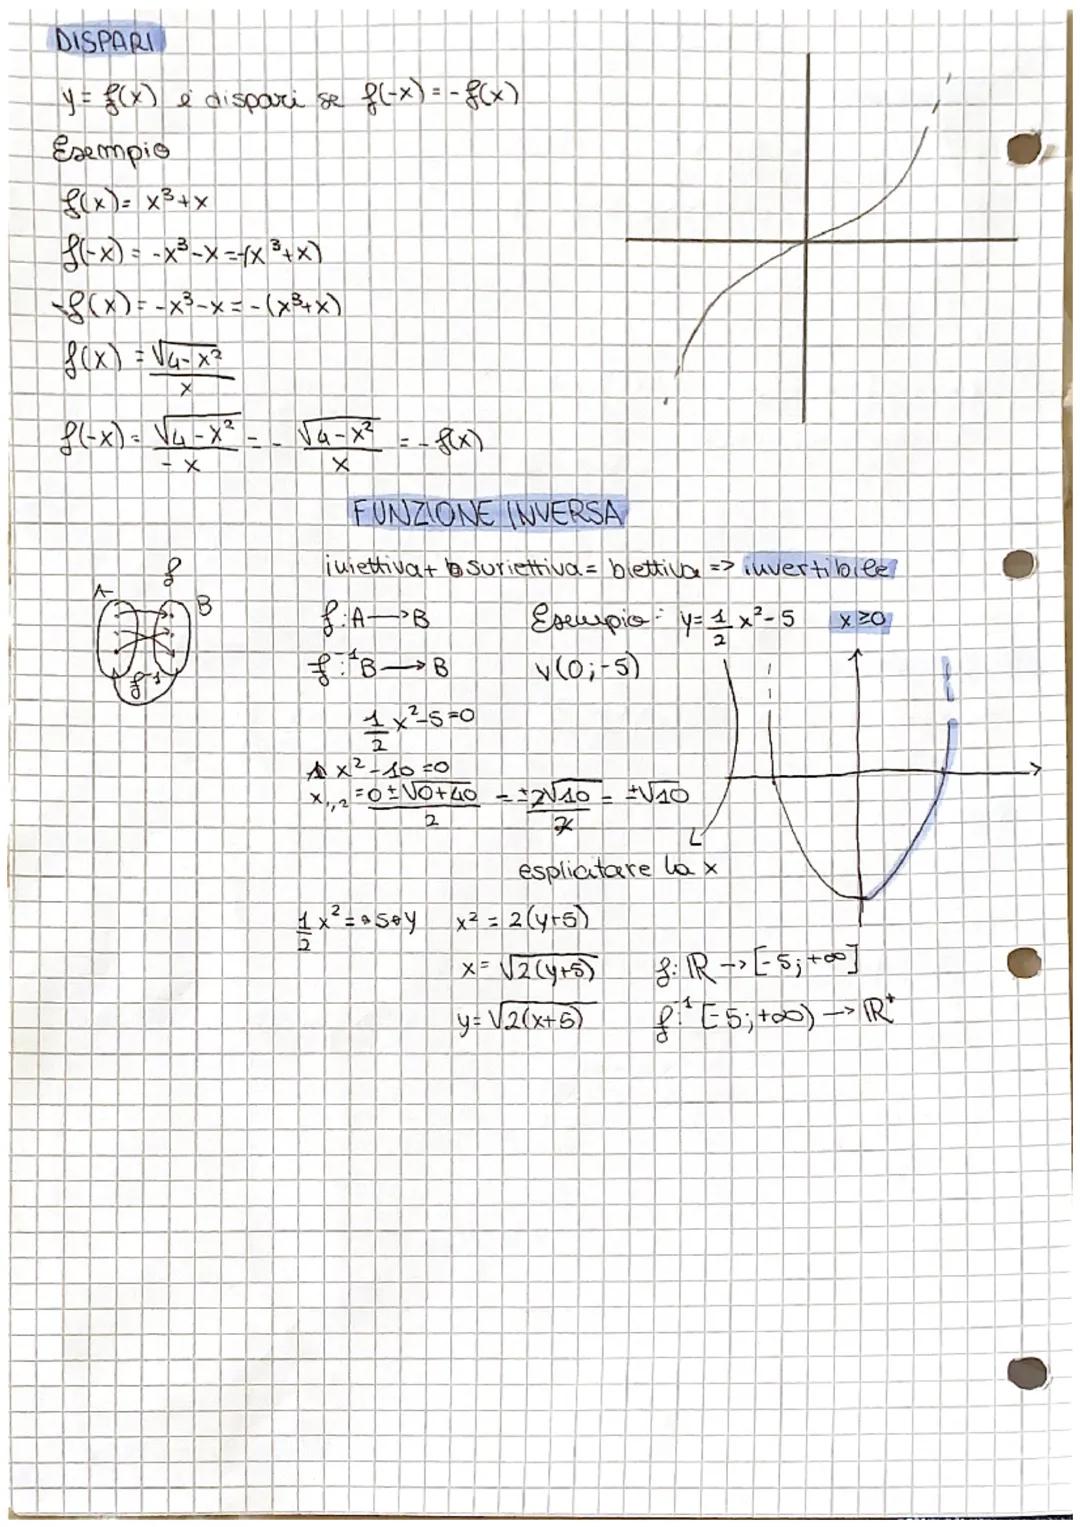 DISPARI
y = f(x) è dispari se f(-x) = -f(x)
Esempio
f(x) = x³+x
f(-x) = -x³-x = -(x³+x)
-f(x) = -x³-x = -(x³+x)
f(x) = √(4-x²) / x
f(-x) = √(4-x²) / -x = - √(4-x²) / x = - f(x)
FUNZIONE INVERSA
iniettiva + suriettiva = biettiva => invertibile
f
A B
f⁻¹
f: A → B Esempio: y = 1/2 x² - 5 x ≥ 0
f⁻¹: B → B V(0;-5)
1/2 x² - 5 = 0
x² - 10 = 0
x₁,₂ = 0 ± √(0+40) / 2 = ± 2√10 / 2 = ±√10
esplicitare la x
1/2 x² = 5+y x² = 2(y+5)
x = √2(y+5) f: ℝ → [-5; +∞]
y = √2(x+5) f⁻¹: [-5; +∞) → ℝ⁺